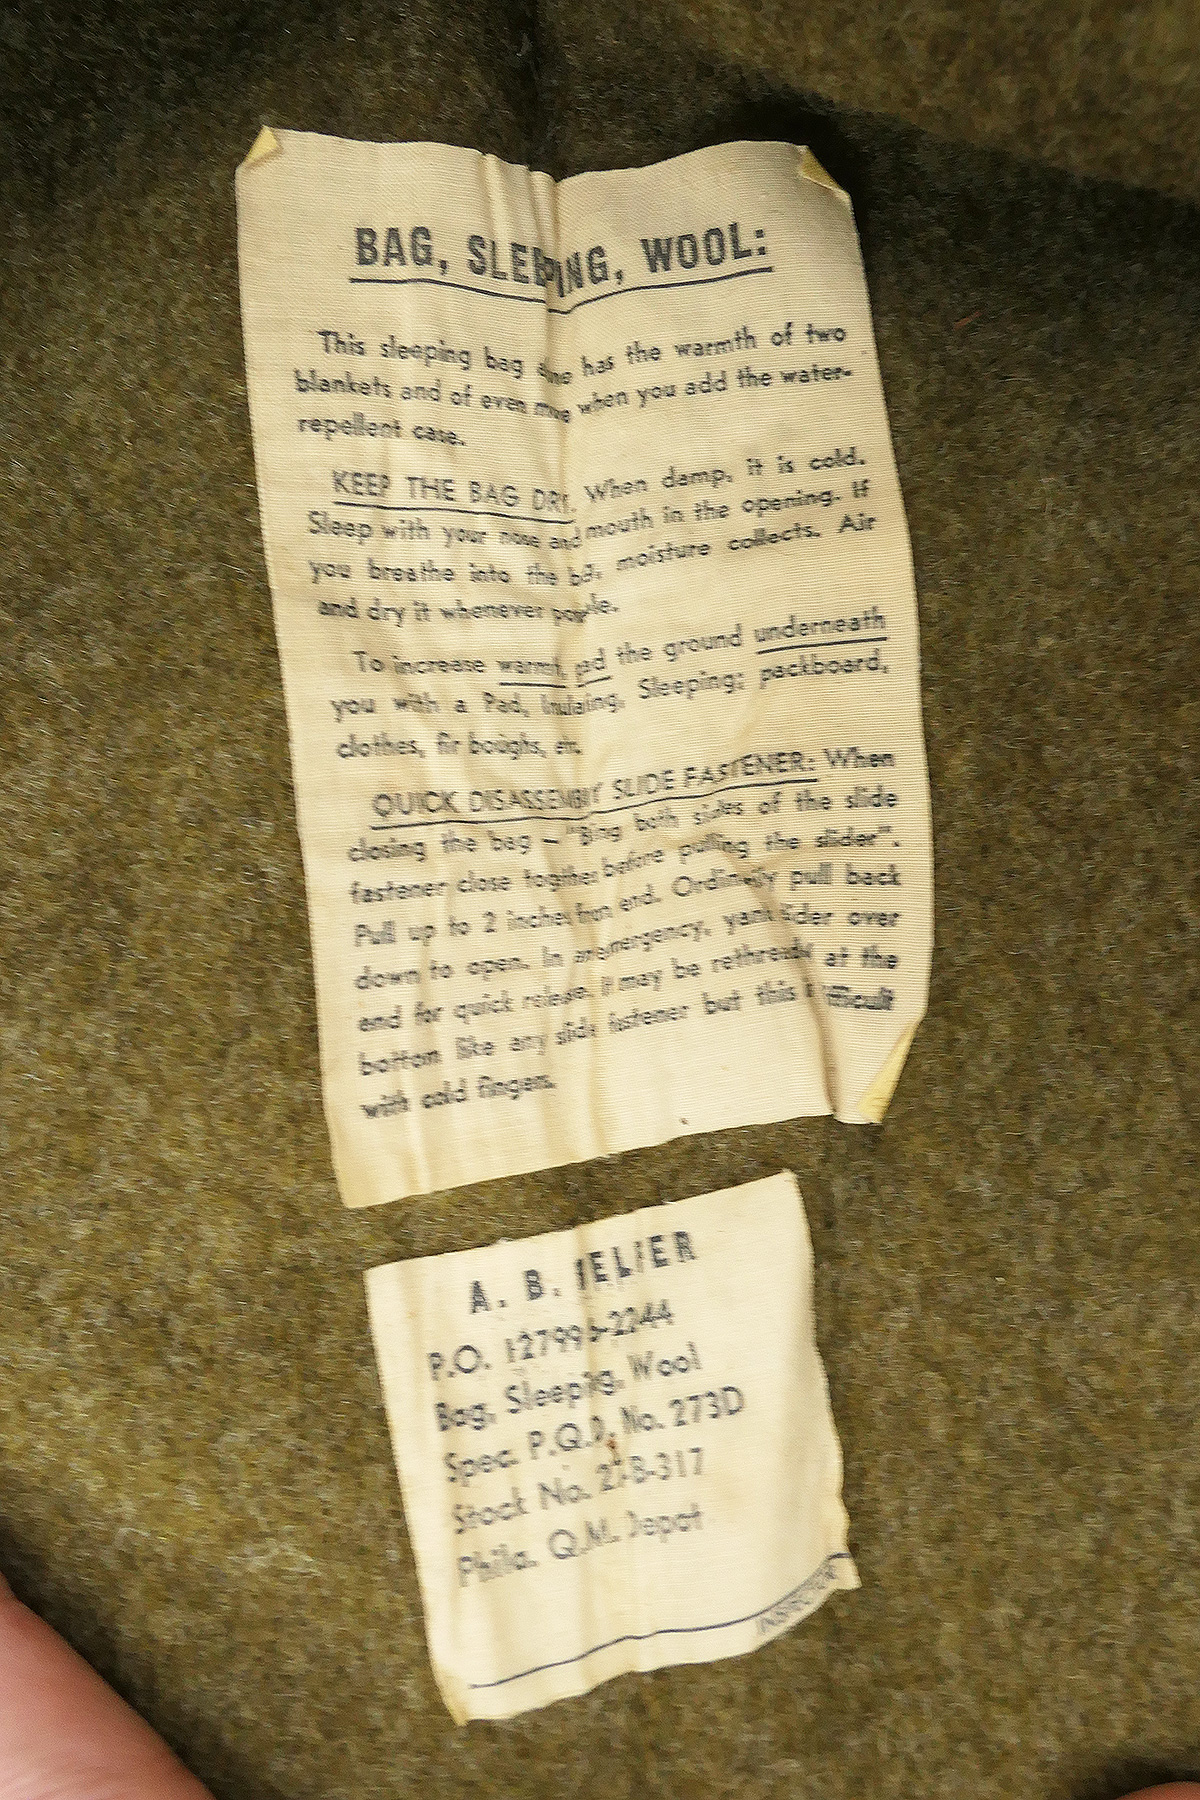 BAG, SLEEPING, WOOL:
This sleeping bag alone has the warmth of two
blankets and of even more when you add the water-
repellent case.
KEEP THE BAG DRY. When damp, it is cold.
Sleep with your nose and mouth in the opening. If
you breathe into the bag, moisture collects. Air
and dry it whenever possible.
To increase warmth, pad the ground underneath
you with a Pad, Insulating, Sleeping; packboard,
clothes, fir boughs, etc.
QUICK DISASSEMBLY SLIDE FASTENER: When
closing the bag — "Bring both sides of the slide
fastener close together before pulling the slider".
Pull up to 2 inches from end. Ordinarily pull back
down to open. In an emergency, yank slider over
end for quick release. It may be rethreaded at the
bottom like any slide fastener but this difficult
with cold fingers.
A. B.
P.O. -2244
Bag, Sleeping, Wool
Spec. P.Q.D. No. 273D
Stock No. 27-B-317
Phila. Q.M. Depot
INSPECTOR